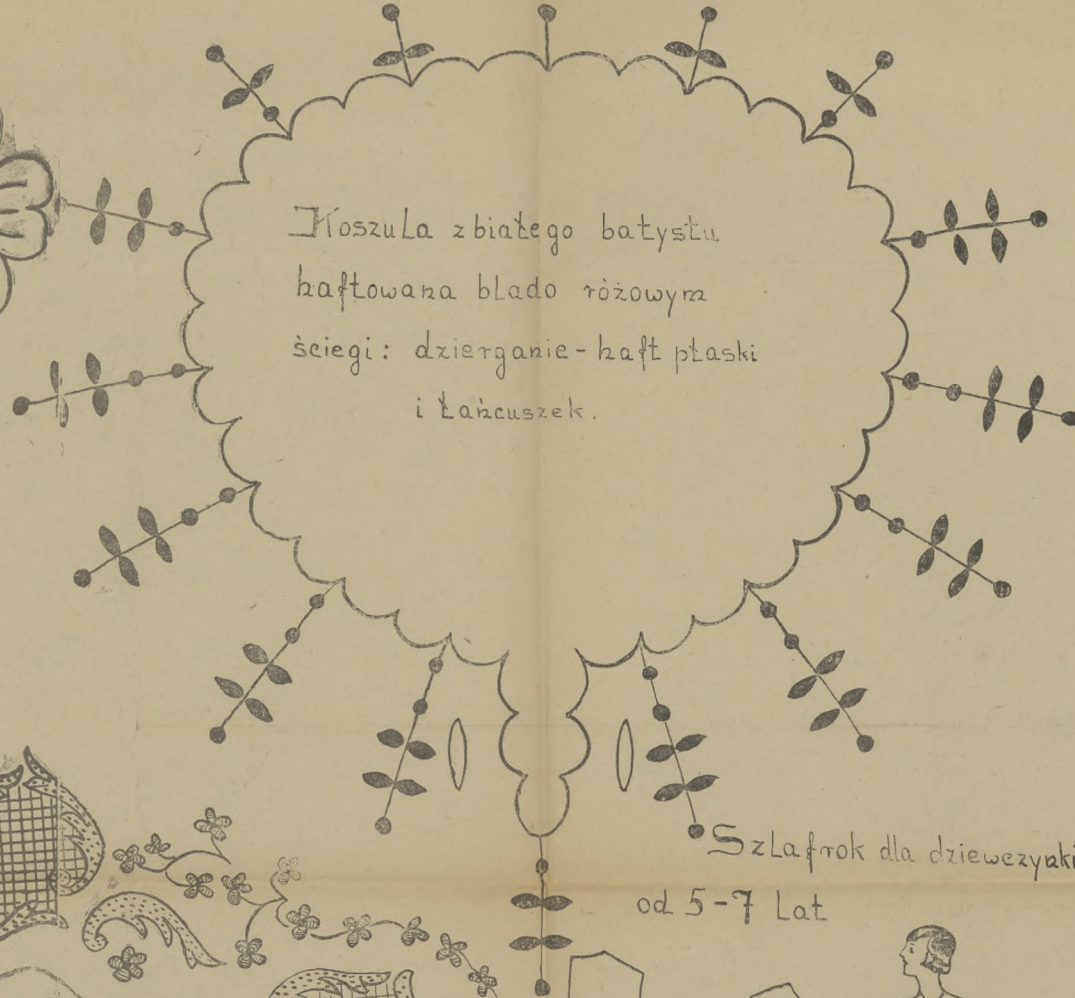 Koszula z białego batystu
haftowana blado różowym
ściegi: dzierganie - haft płaski
i łańcuszek.
Szlafrok dla dziewczynki
od 5-7 lat